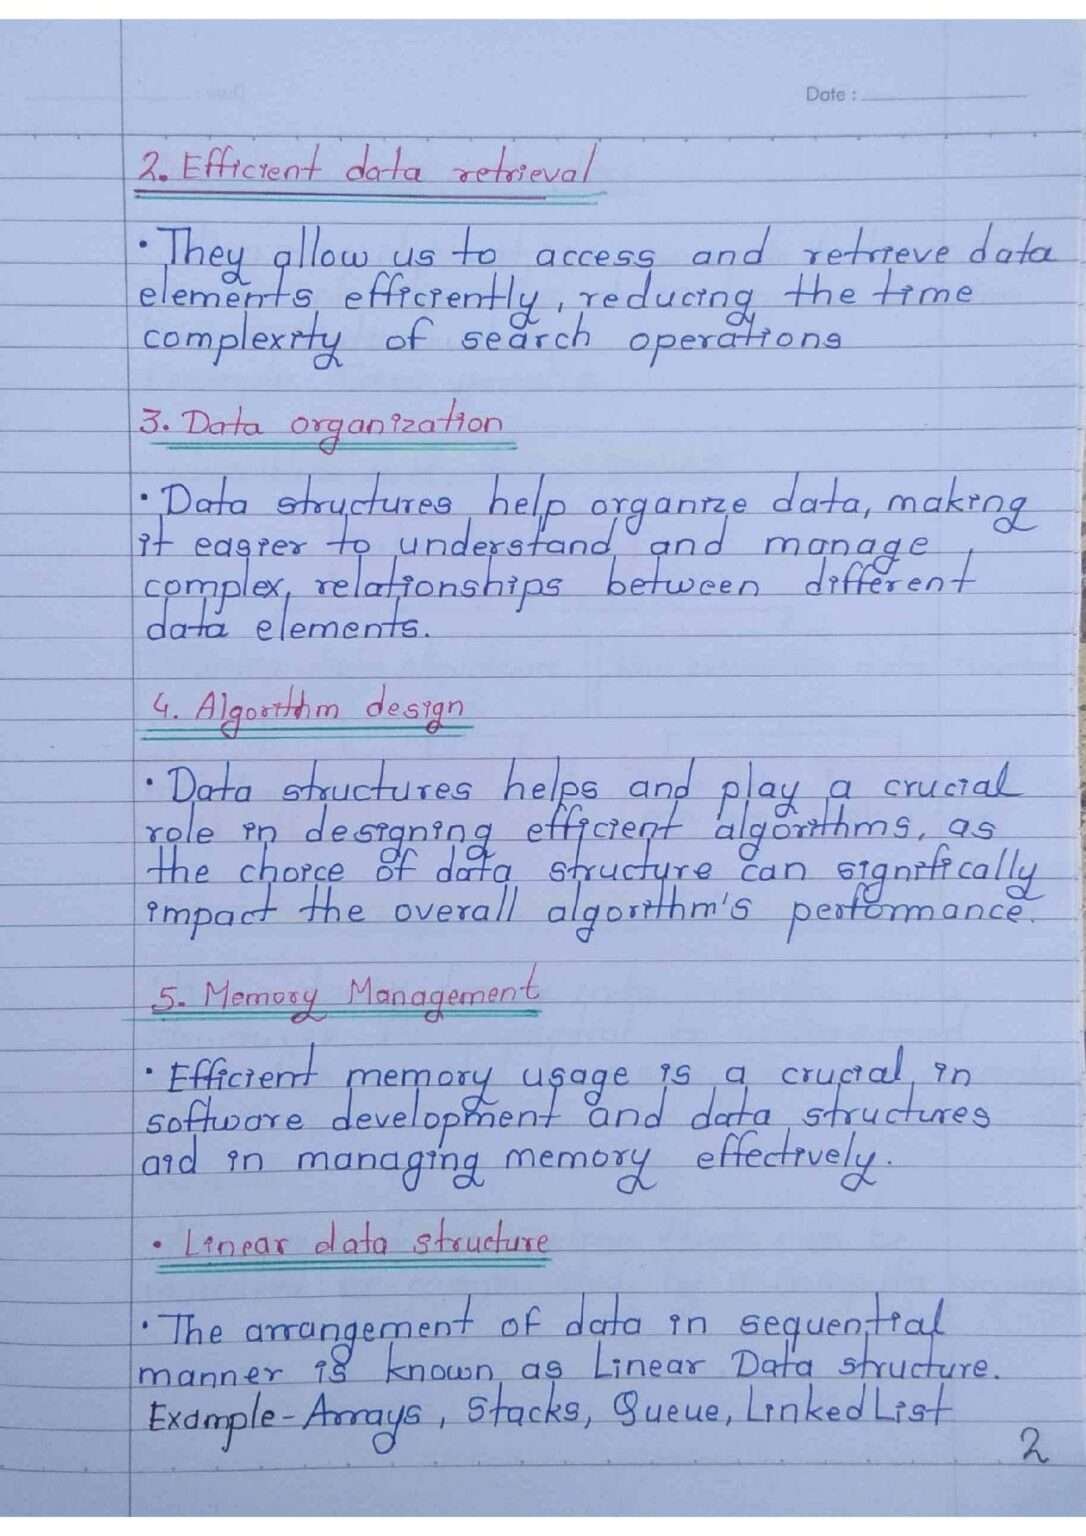 Date :
2. Efficient data retrieval
• They allow us to access and retrieve data
elements efficiently, reducing the time
complexity of search operations
3. Data organization
• Data structures help organize data, making
it easier to understand and manage
complex, relationships between different
data elements.
4. Algorithm design
• Data structures helps and play a crucial
role in designing efficient algorithms, as
the choice of data structure can significally
impact the overall algorithm's performance.
5. Memory Management
• Efficient memory usage is a crucial in
software development and data structures
aid in managing memory effectively.
• Linear data structure
• The arrangement of data in sequential
manner is known as Linear Data structure.
Example - Arrays, Stacks, Queue, Linked List
2